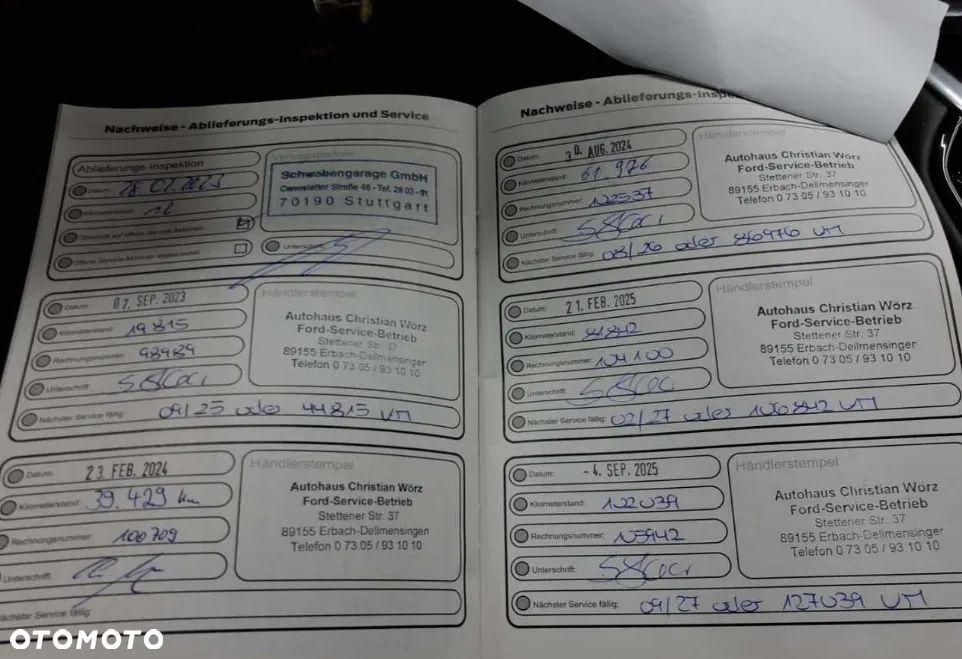 Nachweise - Ablieferungs-Inspektion und Service
Ablieferungs-Inspektion
Datum: 28.02.2023
Kilometerstand: 12
Offene Service-Aktionen
Vertragspartner
Schwabengarage GmbH
Cannstatter Straße 46 - Tel. 28 03 - 01
70190 Stuttgart
Unterschrift:
Datum: 07. SEP. 2023
Kilometerstand: 19815
Rechnungsnummer: 98989
Unterschrift:
Nächster Service fällig: 09/25 oder 44815 KM
Händlerstempel
Autohaus Christian Wörz
Ford-Service-Betrieb
Stettener Str. 37
89155 Erbach-Dellmensingen
Telefon 0 73 05 / 93 10 10
Datum: 23. FEB. 2024
Kilometerstand: 39.429 km
Rechnungsnummer: 100709
Unterschrift:
Nächster Service fällig:
Händlerstempel
Autohaus Christian Wörz
Ford-Service-Betrieb
Stettener Str. 37
89155 Erbach-Dellmensingen
Telefon 0 73 05 / 93 10 10
Nachweise - Ablieferungs-Inspe
Datum: 30. AUG. 2024
Kilometerstand: 61.976
Rechnungsnummer: 102537
Unterschrift:
Nächster Service fällig: 08/26 oder 86976 KM
Händlerstempel
Autohaus Christian Wörz
Ford-Service-Betrieb
Stettener Str. 37
89155 Erbach-Dellmensinger
Telefon 0 73 05 / 93 10 10
Datum: 21. FEB. 2025
Kilometerstand: 81842
Rechnungsnummer: 104100
Unterschrift:
Nächster Service fällig: 02/27 oder 106842 KM
Händlerstempel
Autohaus Christian Wörz
Ford-Service-Betrieb
Stettener Str. 37
89155 Erbach-Dellmensinger
Telefon 0 73 05 / 93 10 10
Datum: - 4. SEP. 2025
Kilometerstand: 102039
Rechnungsnummer: 105942
Unterschrift:
Nächster Service fällig: 09/27 oder 127039 KM
Händlerstempel
Autohaus Christian Wörz
Ford-Service-Betrieb
Stettener Str. 37
89155 Erbach-Dellmensingen
Telefon 0 73 05 / 93 10 10
OTOMOTO